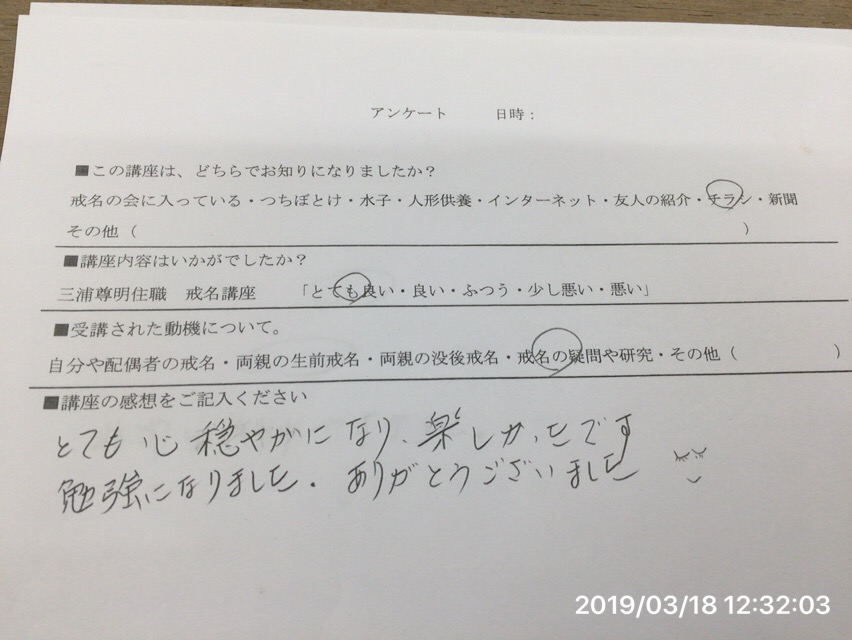 アンケート 日時:
■この講座は、どちらでお知りになりましたか？
戒名の会に入っている・つちぼとけ・水子・人形供養・インターネット・友人の紹介・チラシ・新聞
その他（ ）
■講座内容はいかがでしたか？
三浦尊明住職 戒名講座 「とても良い・良い・ふつう・少し悪い・悪い」
■受講された動機について。
自分や配偶者の戒名・両親の生前戒名・両親の没後戒名・戒名の疑問や研究・その他（ ）
■講座の感想をご記入ください
とても心穏やかになり、楽しかったです
勉強になりました. ありがとうございました
2019/03/18 12:32:03